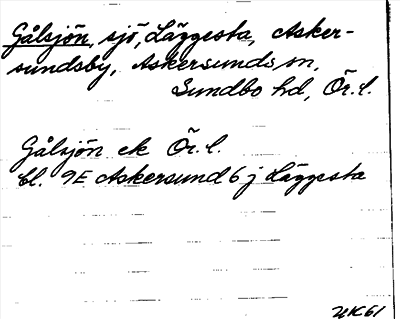 Gålsjön, sjö, Läggesta, Asker-
sundsby, Askersunds sn,
Sundbo hd, Ör. l.
Gålsjön ek Ör. l.
bl. 9E Askersund 6 j Läggesta
UK61